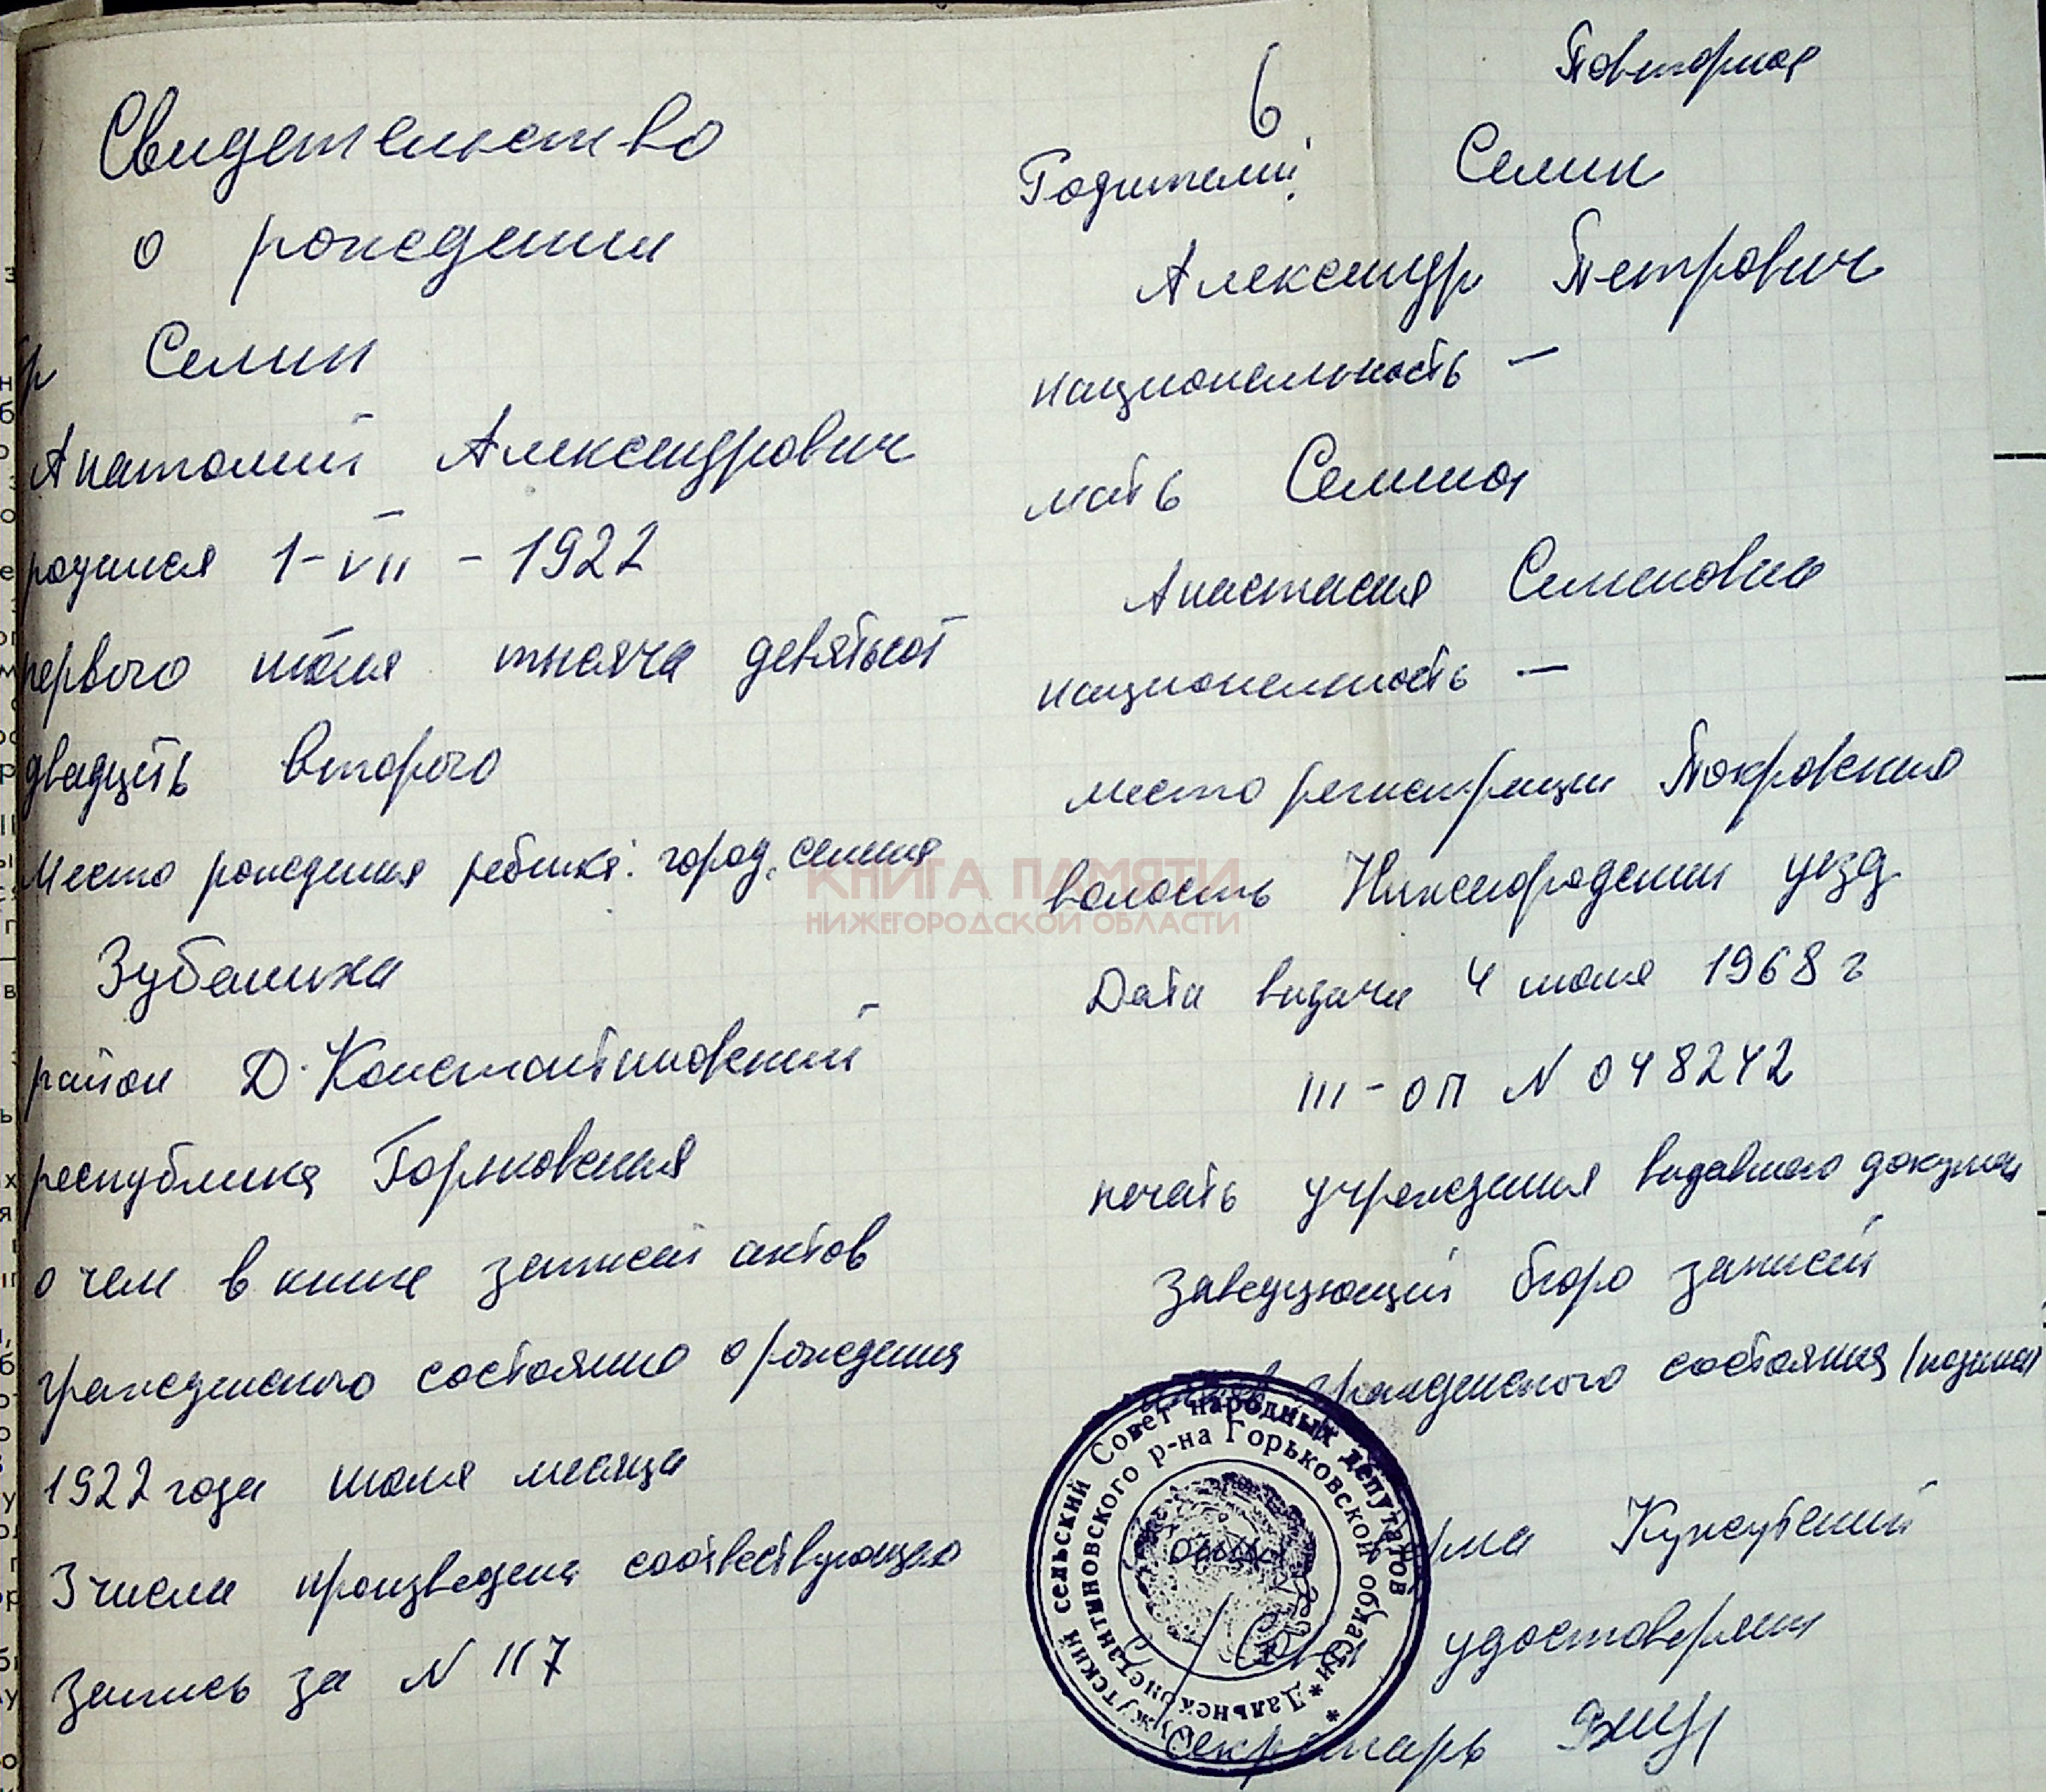 Свидетельство
о рождении
Семин
Анатолий Александрович
родился 1-VII-1922
первого июля тысяча девятьсот
двадцать второго
Место рождения ребенка: город, селения
Зубаниха
район Д-Константиновский
республика Горьковская
о чем в книге записей актов
гражданского состояние о рождения
1922 года июля месяца
3 числа произведена соответствующая
запись за N 117
6
Повторная
Родители: Семин
Александр Петрович
национальность —
мать Семина
Анастасия Семеновна
национальность —
место регистрации Покровская
волость Нижегородский уезд
Дата выдачи 4 июля 1968 г
III-ОП N 048242
печать учреждения выдавшего докумен
Заведующий бюро записей
гражданского состояния (подпись)
удостоверяет
секретарь
сельский Совет народных депутатов
Дальнеконстантиновского р-на Горьковской области
КНИГА ПАМЯТИ
НИЖЕГОРОДСКОЙ ОБЛАСТИ